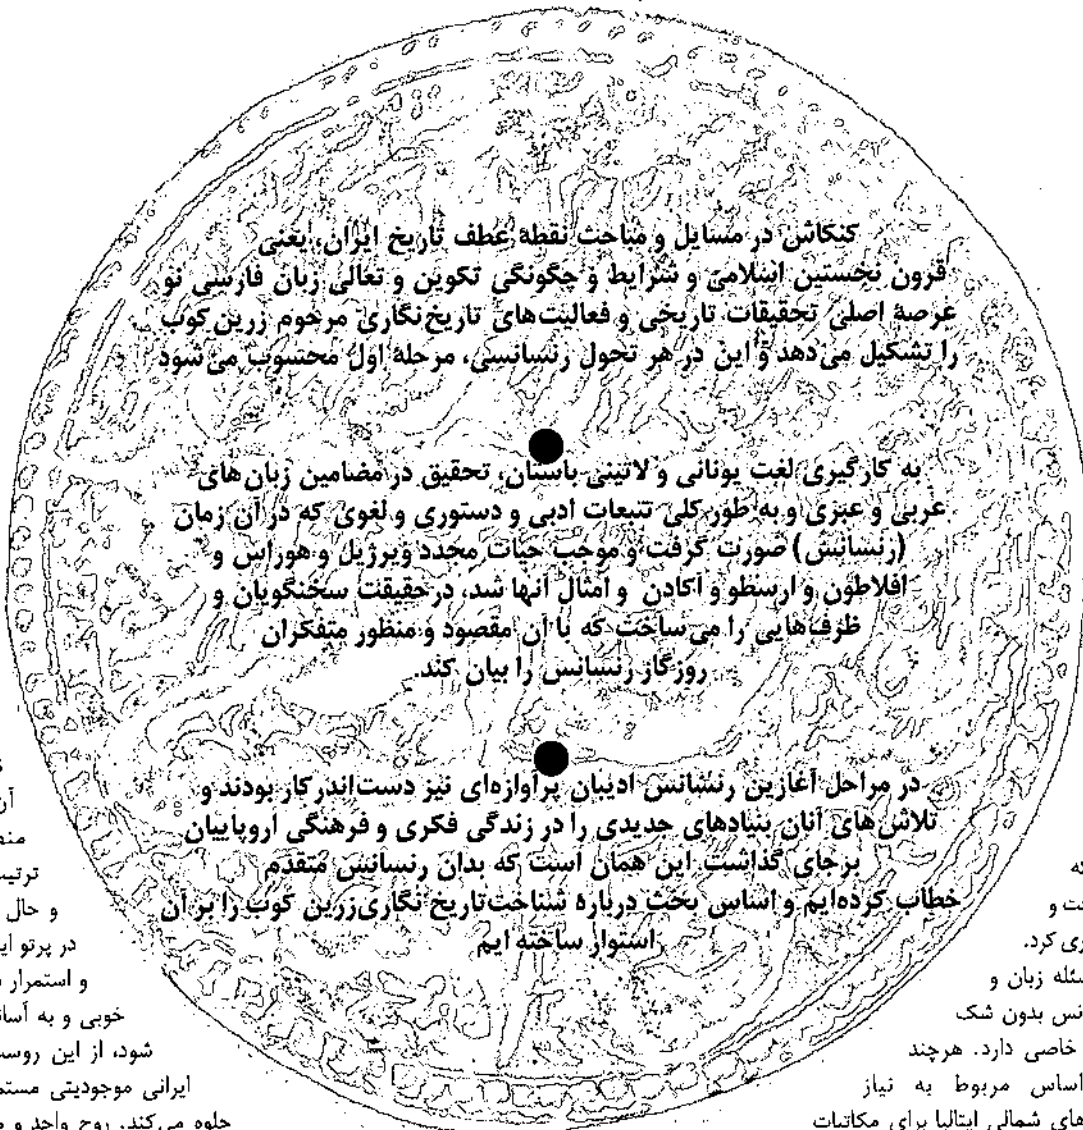 کنکاش در مسایل و مباحث نقطهٔ عطف تاریخ ایران، یعنی
قرون نخستین اسلامی و شرایط و چگونگی تکوین و تعالی زبان فارسی نو
عرصهٔ اصلی تحقیقات تاریخی و فعالیت‌های تاریخ‌نگاری مرحوم زرین‌کوب
را تشکیل می‌دهد و این در هر تحول رنسانسی، مرحلهٔ اول محسوب می‌شود
به کارگیری لغت یونانی و لاتینی باستان، تحقیق در مضامین زبان‌های
عربی و عبری و به طور کلی تتبعات ادبی و دستوری و لغوی که در آن زمان
(رنسانس) صورت گرفت و موجب حیات مجدد ویرژیل و هوراس و
افلاطون و ارسطو و آکادن و امثال آنها شد، در حقیقت سخنگویان و
ظرف‌هایی را می‌ساخت که با آن مقصود و منظور متفکران
روزگار رنسانس را بیان کند.
در مراحل آغازین رنسانس ادیبان پرآوازه‌ای نیز دست‌اندرکار بودند و
تلاش‌های آنان بنیادهای جدیدی را در زندگی فکری و فرهنگی اروپاییان
برجای گذاشت. این همان است که بدان رنسانس متقدم
خطاب کرده‌ایم و اساس بحث دربارهٔ شناخت تاریخ نگاری زرین کوب را بر آن
استوار ساخته ایم
ری کرد.
زبان و
بدون شک
خاصی دارد. هرچند
اساس مربوط به نیاز
های شمالی ایتالیا برای مکاتبات
آن
و حال
در پرتو
و استمرار
خوبی و به
شود، از این
ایرانی موجودیتی
جلوه می‌کند. روح واحد و